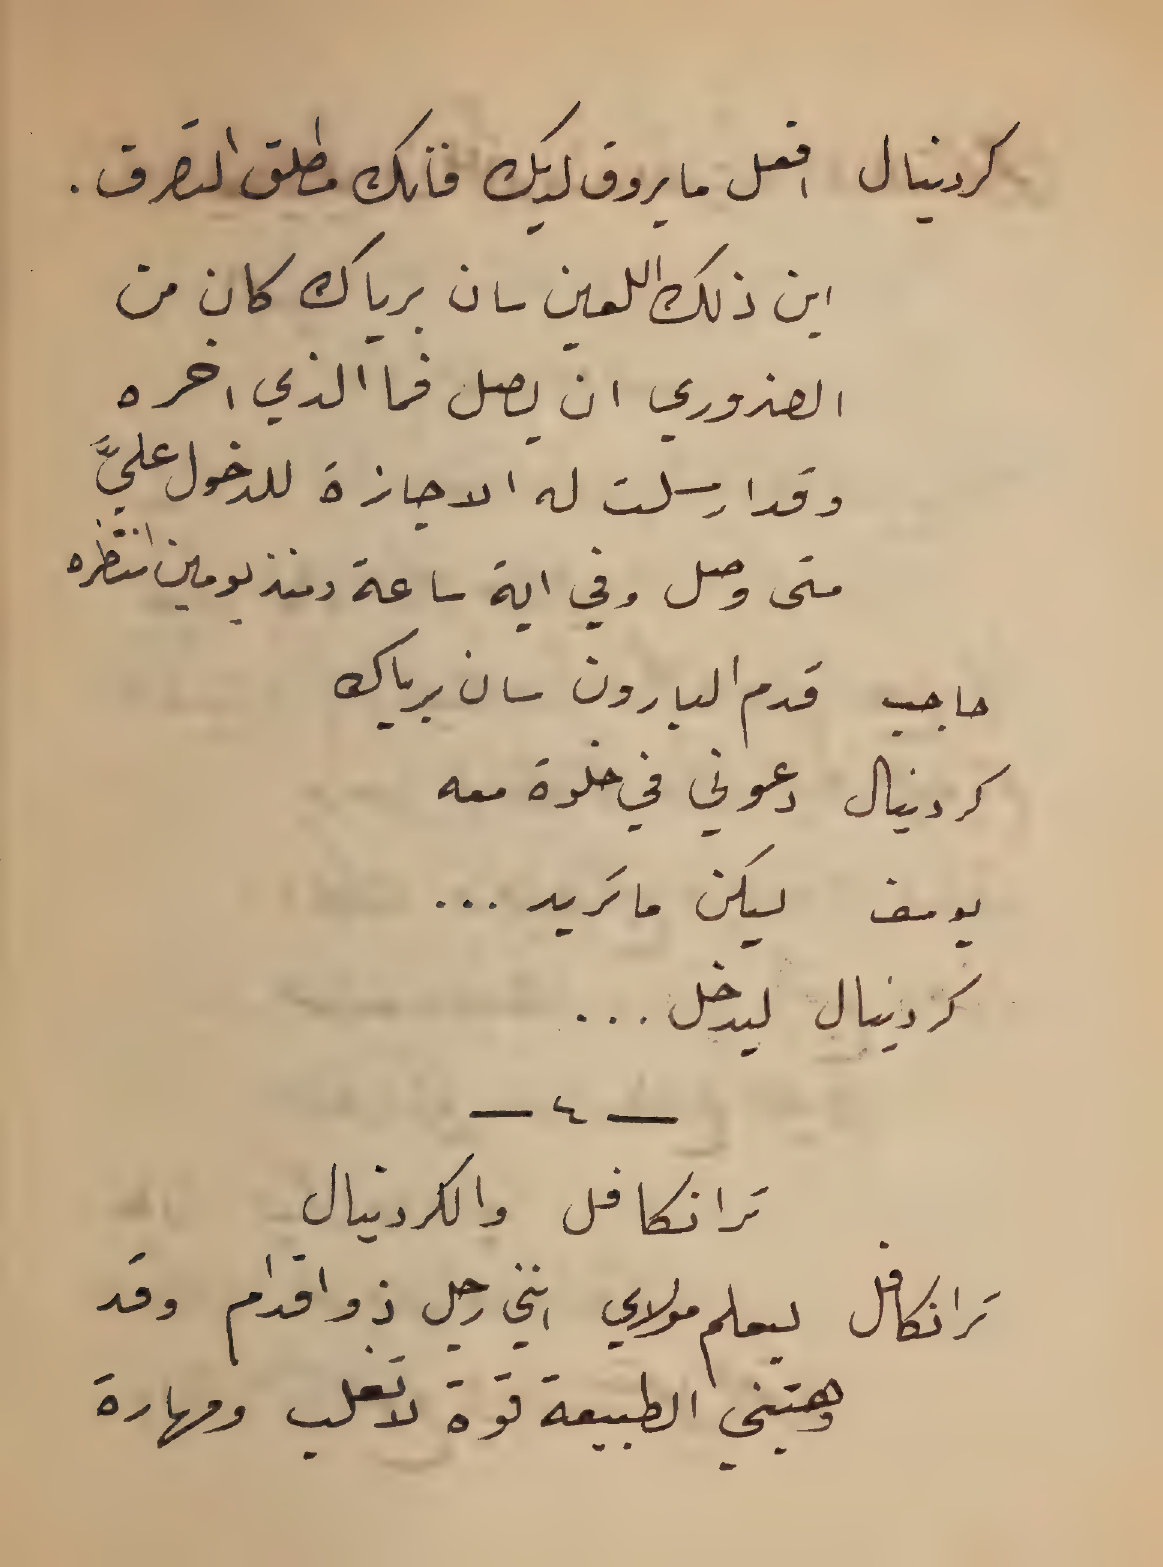 كردينال افعل ما يروق لديك فأنك مطلق التصرف .
اين ذلك اللعين سان برياك كان من
الضروري ان يصل فما الذي اخره
وقد ارسلت له الاجازة للدخول عليَّ
متى وصل وفي اية ساعة ومنذ يومين انتظره
حاجب قدم البارون سان برياك
كردينال دعوني في خلوة معه
يوسف ليكن ما تريد ...
كردينال ليدخل ...
— ٤ —
ترانكافل والكردينال
ترانكافل ليعلم مولاي انني رجل ذو اقدام وقد
وهبتني الطبيعة قوة لا تغلب ومهارة